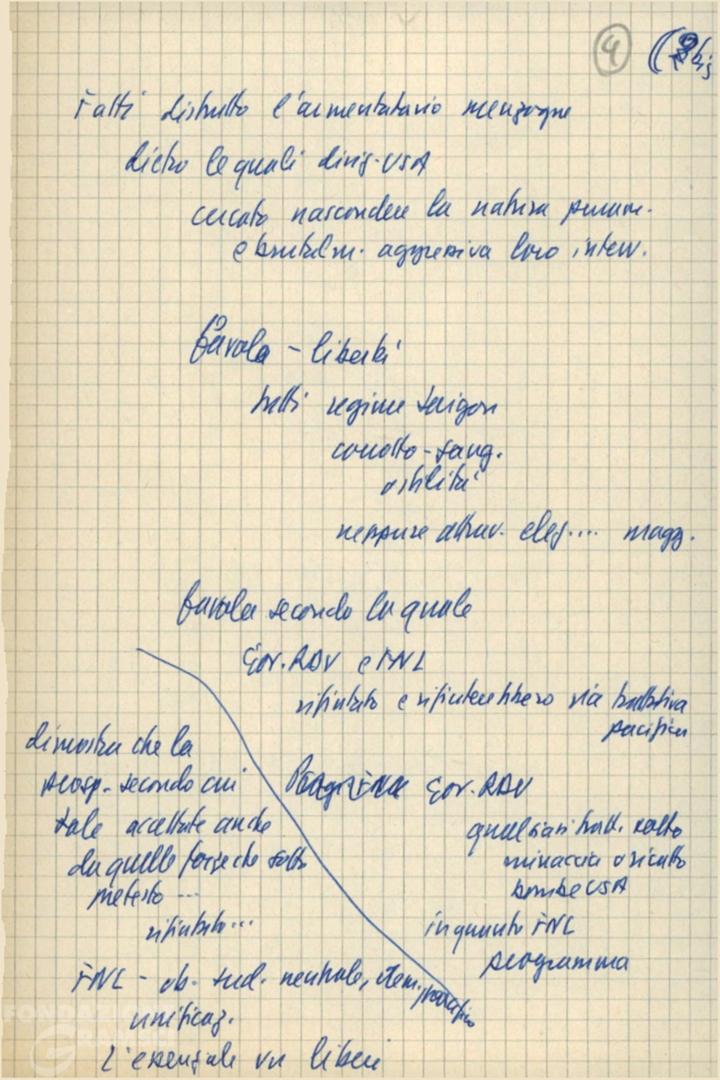 4 (2bis
Fatti distrutto l'armentatario menzogne
dietro le quali dirig. USA
cercato nascondere la natura puram.
e brutalm. aggressiva loro interv.
favola – libertà
tutti regime Saigon
corrotto – sang.
ostilità
neppure attrav. elez.... magg.
favola secondo la quale
Gov. RDV e FNL
rifiutato e rifiuterebbero via trattativa
pacifica
dimostra che la
prosp. secondo cui
tale accettate anche
da quelle forze che sotto
pretesto ...
rifiutato...
Gov. RDV
qualsiasi tratt. sotto
minaccia o ricatto
bombe USA
in quanto FNL
programma
FNL – ob. sud. neutrale, dem., pacifico
unificaz.
L'essenziale
FONDAZIONE
GRAMSCI